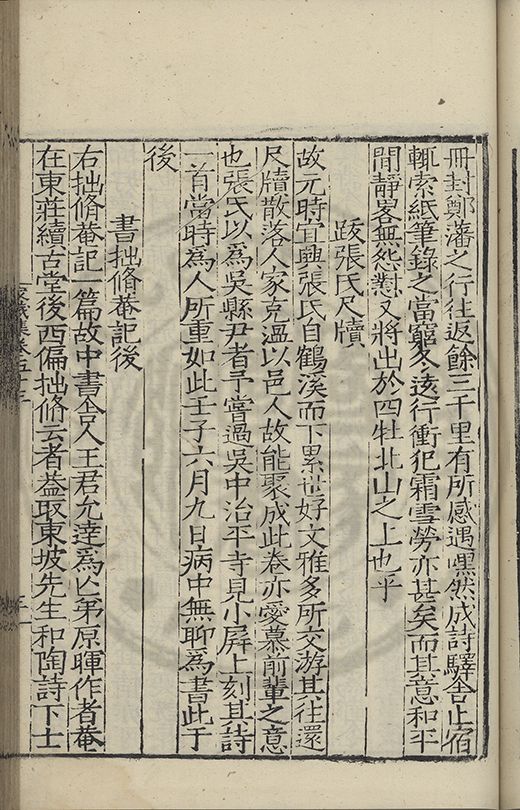 冊封鄭藩之行往返餘三千里有所感遇嘿然成詩驛舍止宿
輒索紙筆錄之當窮冬遠行衝犯霜雪勞亦甚矣而其意和平
閒靜畧無怨懟又將出於四牡北山之上也乎
跋張氏尺牘
故元時宜興張氏自鶴溪而下累世好文雅多所交游其往還
尺牘散落人家克溫以邑人故能聚成此卷亦愛慕前輩之意
也張氏以為吳縣尹者予嘗過吳中治平寺見小屏上刻其詩
一首當時為人所重如此壬子六月九日病中無聊為書此于
後
書拙脩菴記後
右拙脩菴記一篇故中書舍人王君允達為亡弟原暉作者菴
在東莊續古堂後西偏拙脩云者葢取東坡先生和陶詩下士